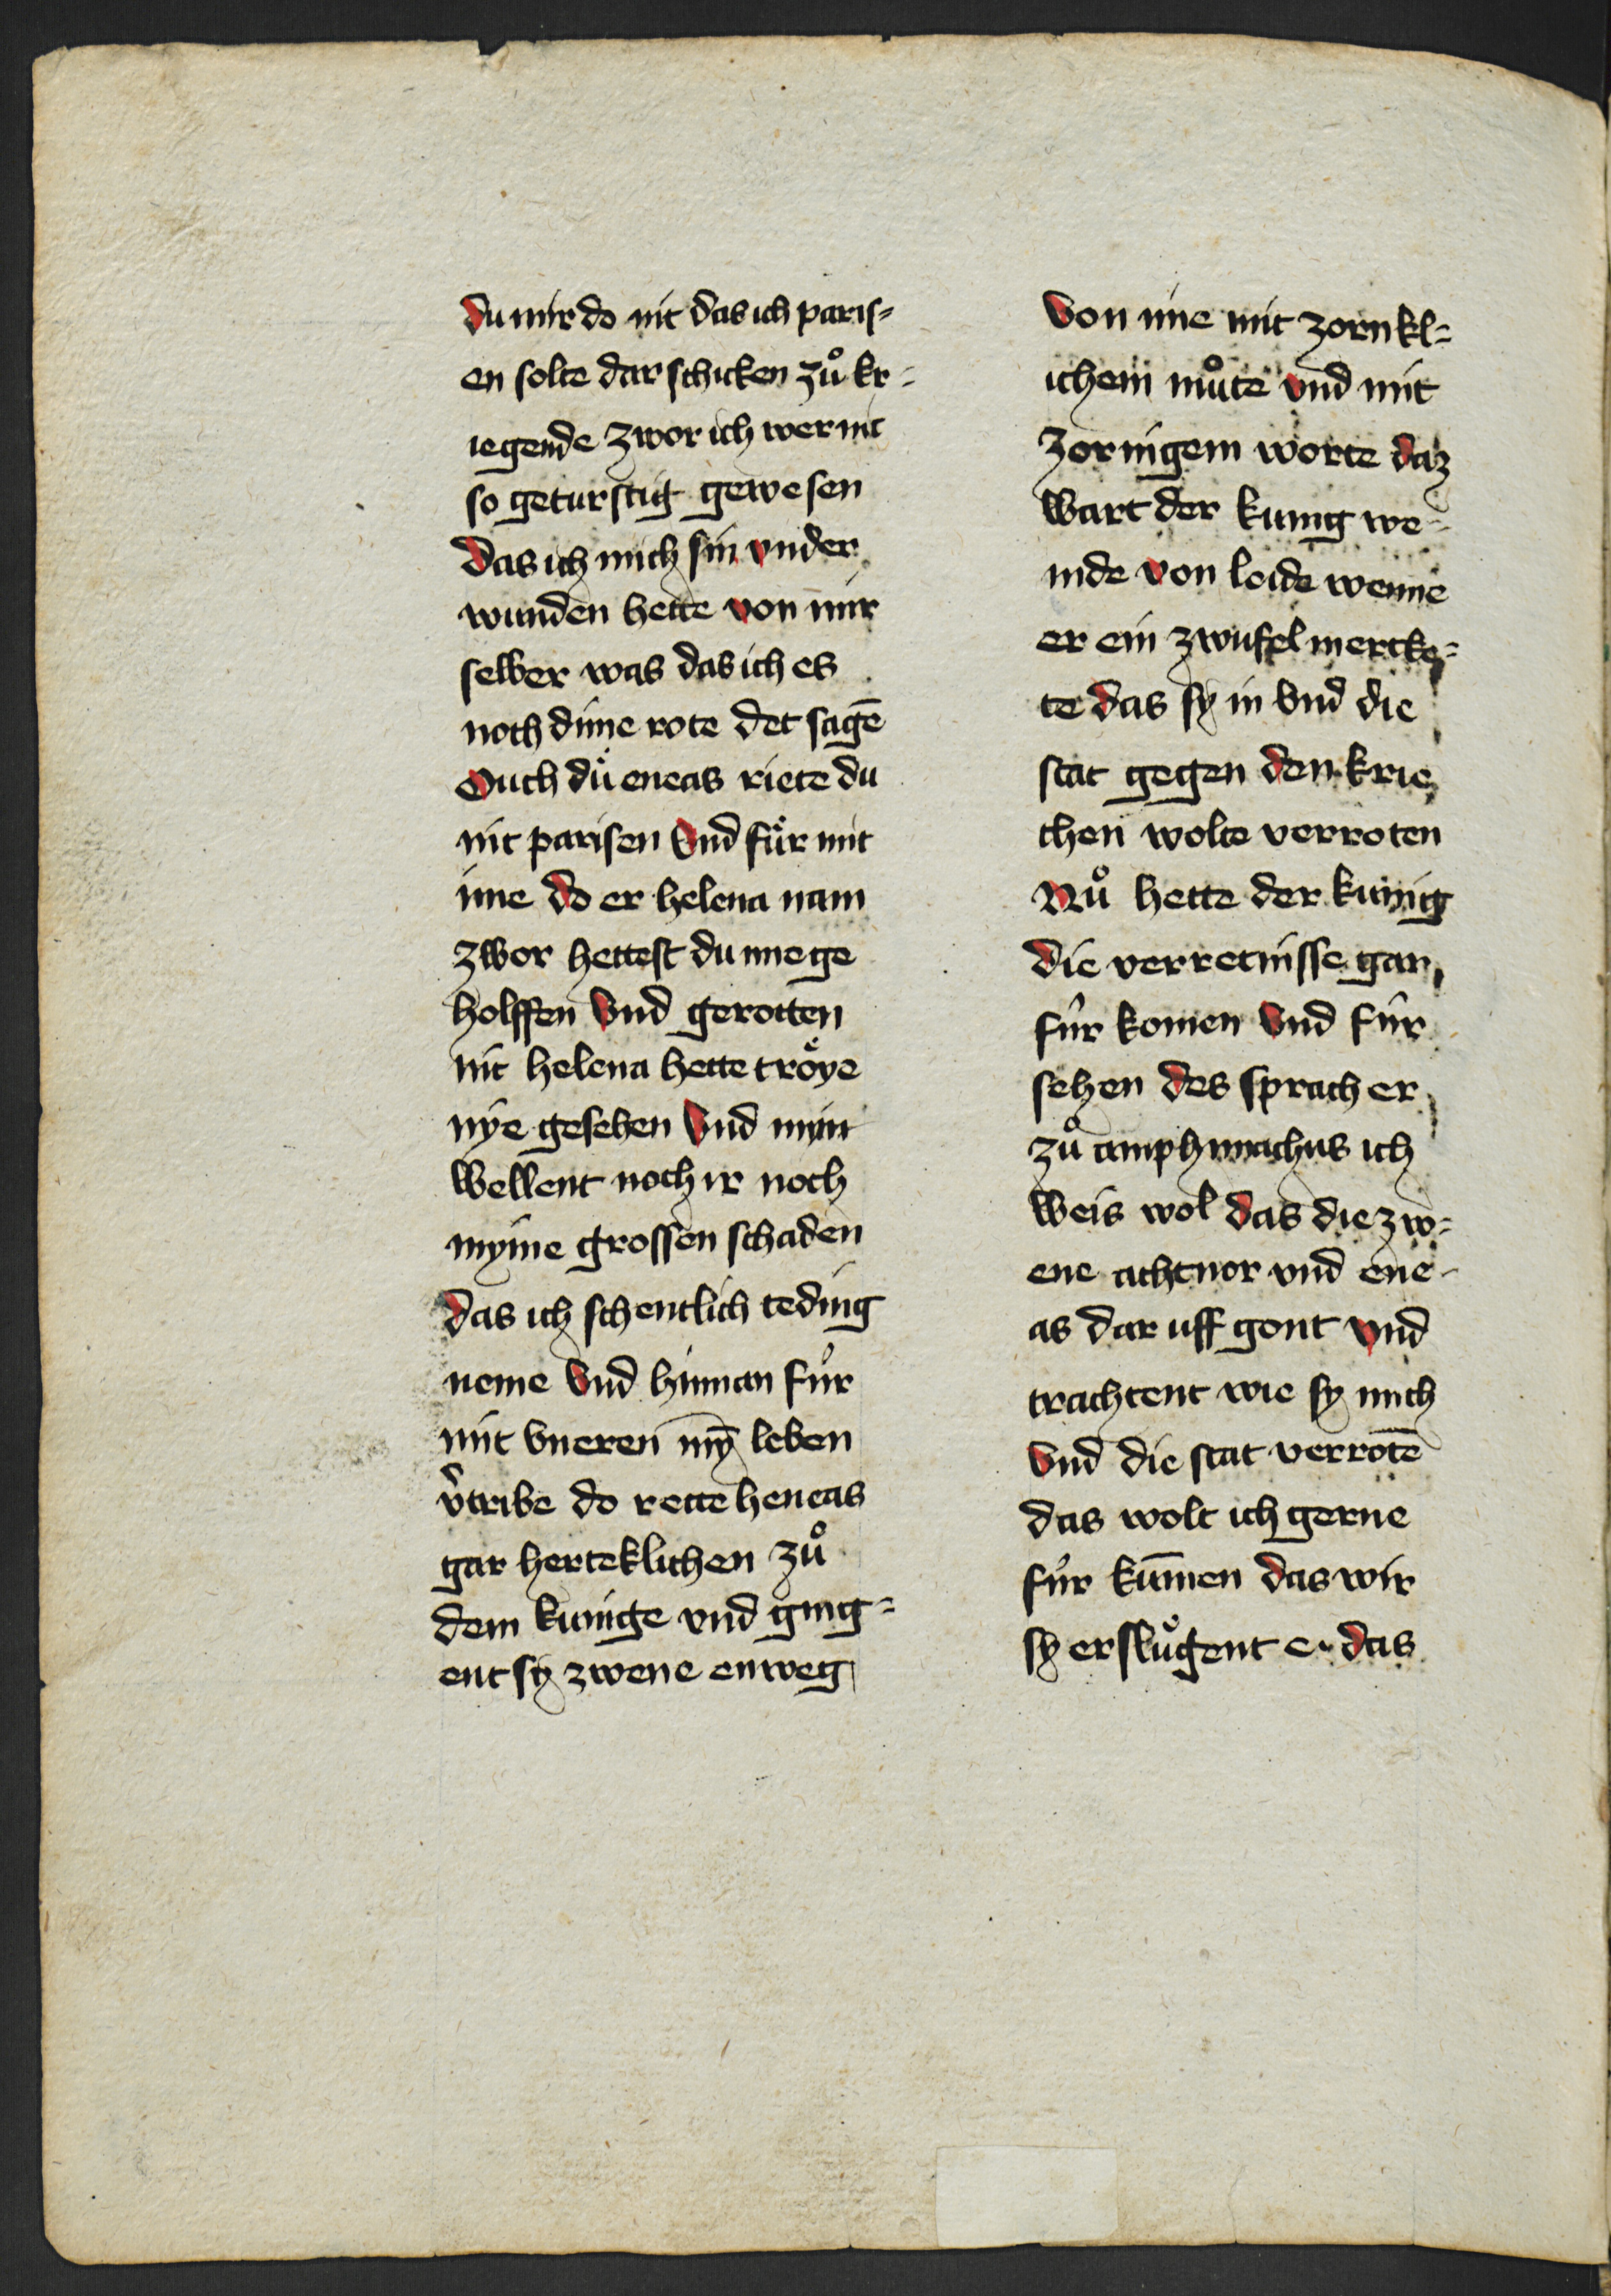 du mir do nit das ich paris=
en solte dar schicken zuͦ kr=
iegende zwor ich wer nit
so geturstig gewesen
das ich mich sin vnder
wunden hette von mir
selber was das ich es
noch dime rote det sagē
Ouch dü eneas riete du
nit parisen Vnd für mit
ime do er helena nam
zwor hettest du ime ge
holffen Vnd gerotten
nit helena hette tröye
nÿe gesehen Vnd min
Wellent noch ir noch
myme grossen schaden
das ich schentlich teding
neme Vnd hinnan fuͤr
mit vneren my̅ leben
v̾tribe do rette heneas
gar herteklichen zuͦ
dem kunige vnd ging=
ent sy zwene enweg
Von ime mit zornkl=
ichem muͦte vnd mit
zornigem worte daz
Wart der kunig we=
inde von leide wenne
er ein zwifel mercke=
te das sy in Vnd die
stat gegen den krie
chen wolte verroten
Nuͦ hette der kunig
die verretnisse gar
für komen Vnd für
sehen des sprach er
zuͦ amphimachus ich
Weis wol das die zw=
ene athtnor vnd ene=
as dar uff gont vnd
trachtent wie sy mich
Vnd die stat verrotē
das wolt ich gerne
für kum̅en das wir
sy erslügent e das